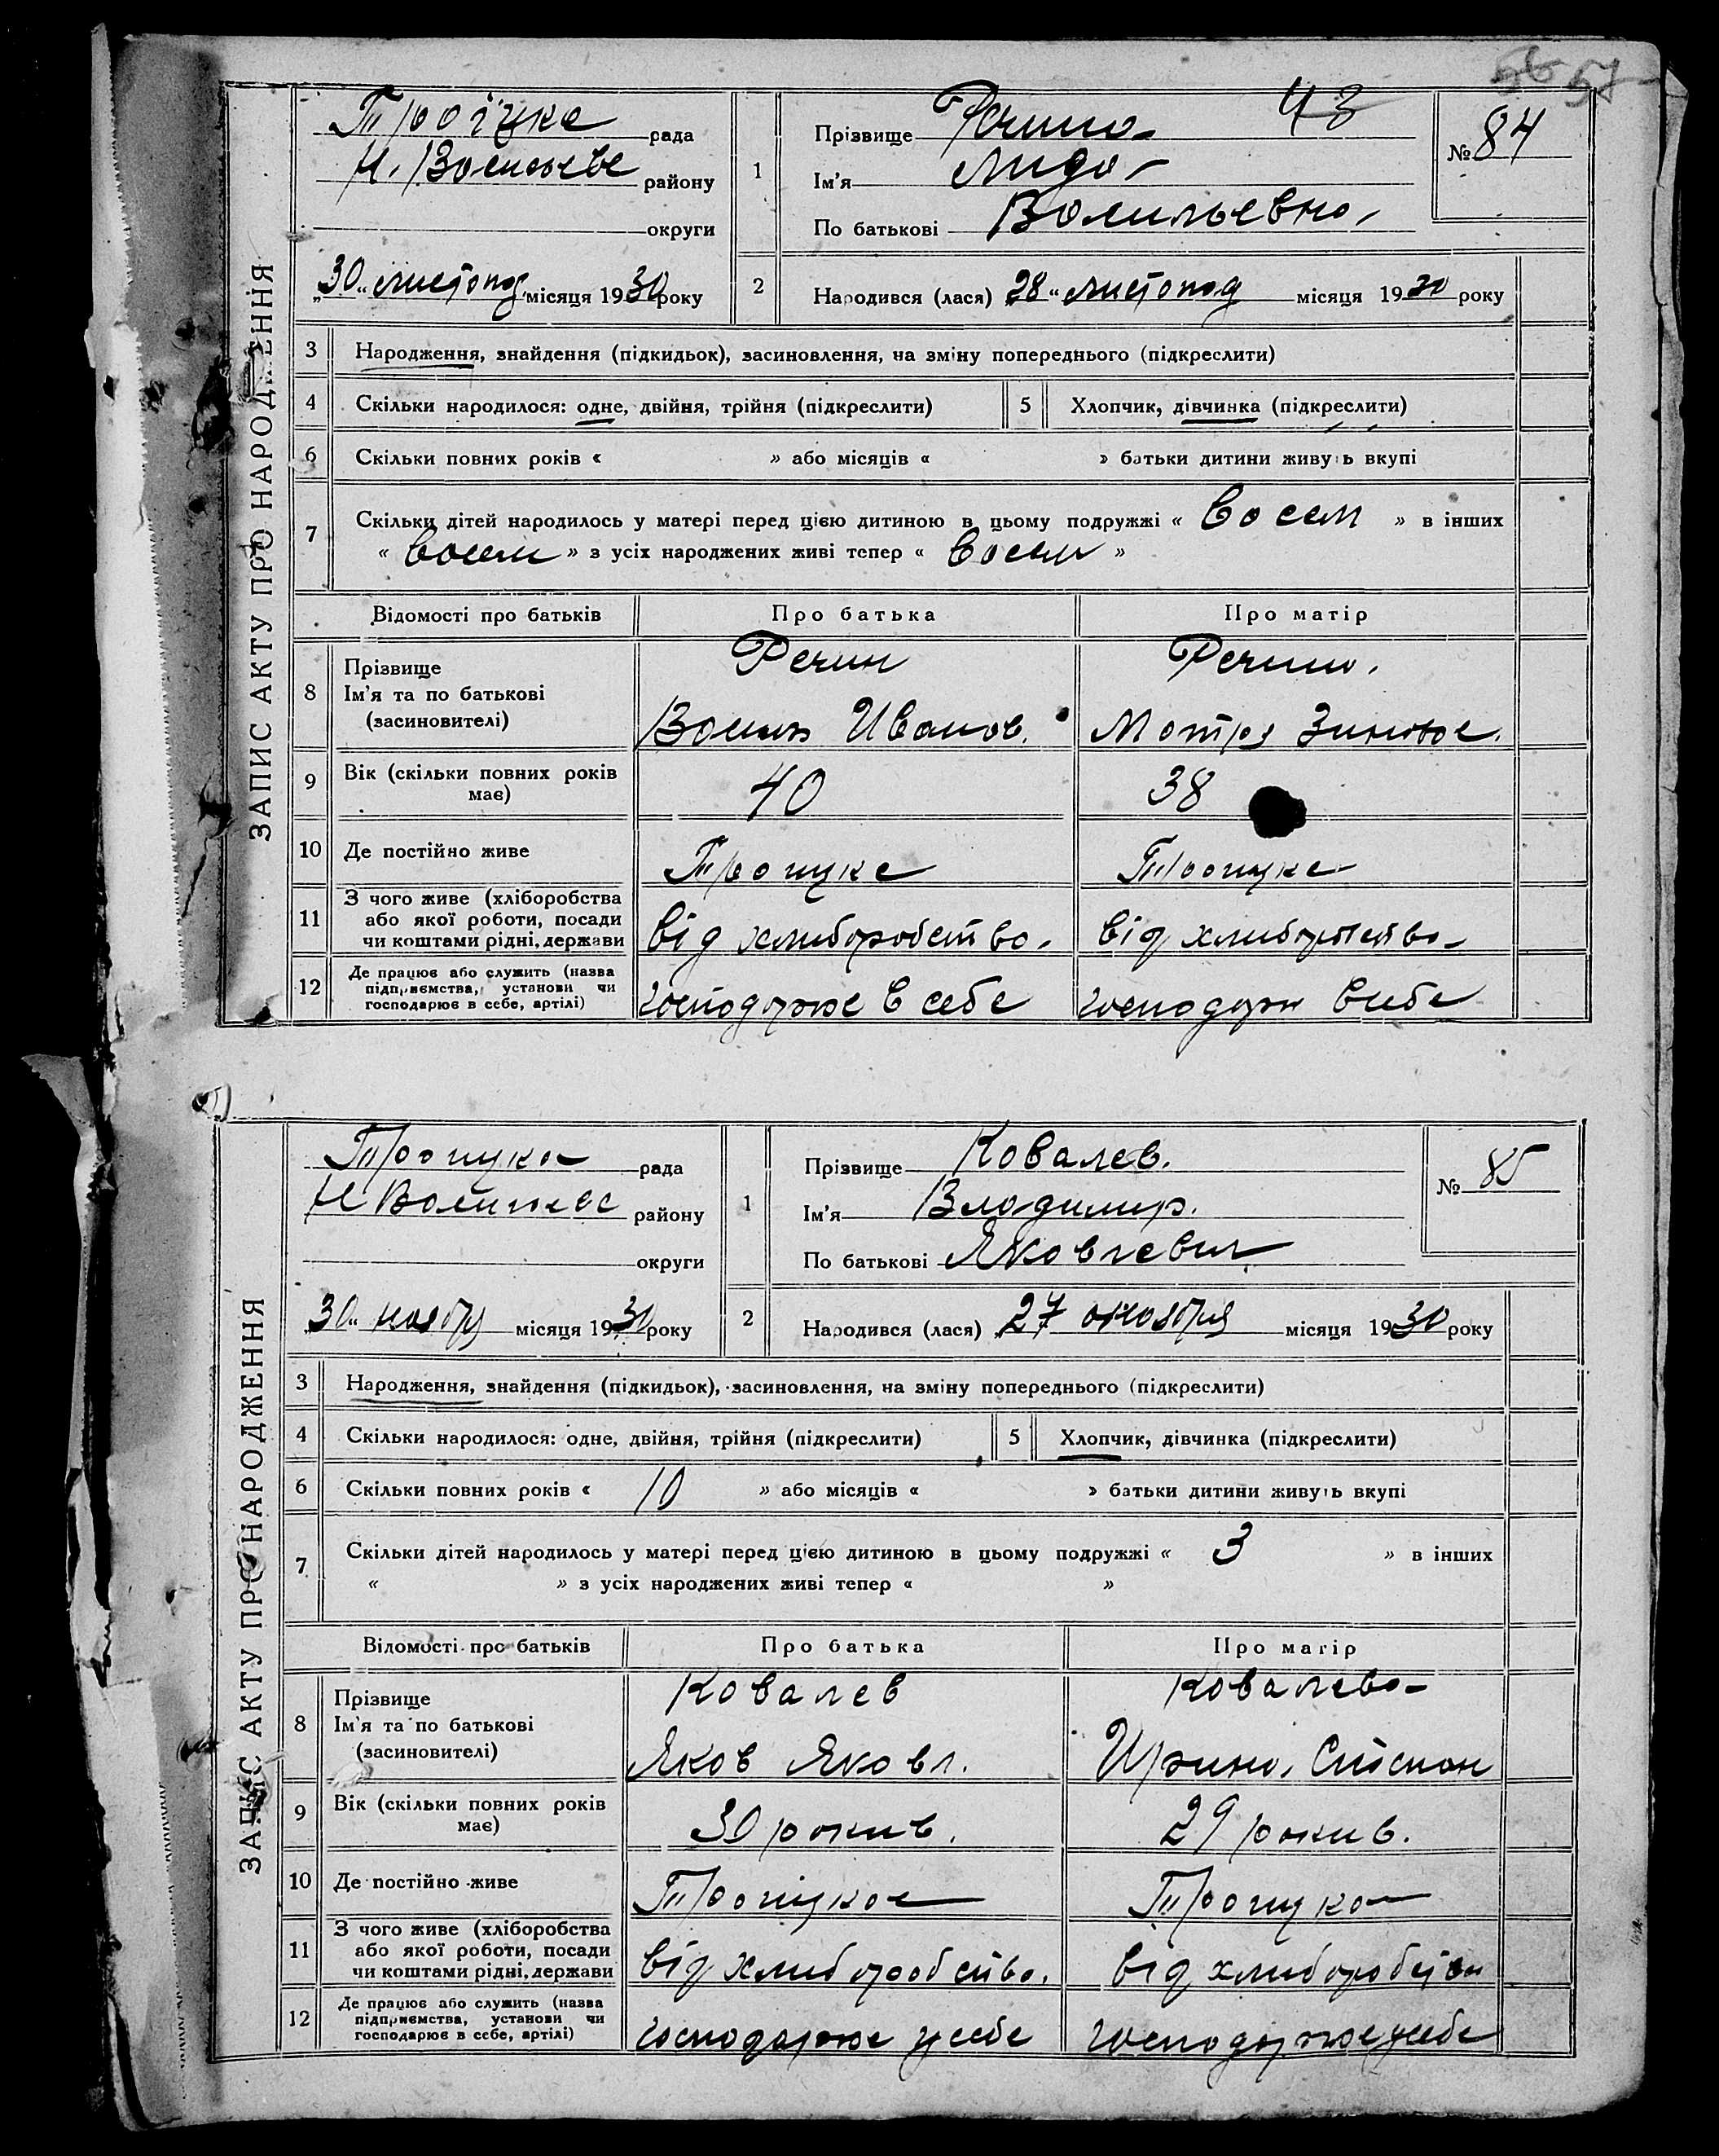 57
ЗАПИС АКТУ ПРО НАРОДЖЕННЯ
Троїцке рада
районy
округи
„30“ листопад. місяця 1930 року
1
Прізвище Речина 43
Ім'я Лида
По батькові Васильевна
№ 84
2 Народився (лася) „28“ листопад місяця 1930 року
3 Народження, знайдення (підкидьок), засиновлення, на зміну попереднього (підкреслити)
4 Скільки народилося: одне, двійня, трійня (підкреслити) 5 Хлопчик, дівчинка (підкреслити)
6 Скільки повних років « » або місяців « » батьки дитини живуть вкупі
7 Скільки дітей народилось у матері перед цією дитиною в цьому подружжі « Восем » в інших
« Восем » з усіх народжених живі тепер « Восем »
Відомості про батьків Про батька Про матір
8 Прізвище Речин Речина.
Ім'я та по батькові
(засиновителі) Василь Иванов. Мотря
9 Вік (скільки повних років має) 40 38
10 Де постійно живе Троицке Троицке
11 З чого живе (хліборобства
або якої роботи, посади
чи коштами рідні, держави від хлиборобства. від хлиборобства
12 Де працює або служить (назва
підприємства, установи чи
господарює в себе, артілі) господарює в себе господарю в себе
ЗАПИС АКТУ ПРО НАРОДЖЕННЯ
Троицка рада
району
округи
„30“ ноября місяця 1930 року
1
Прізвище Ковалев.
Ім'я Владимир.
По батькові Яковлевич
№ 85
2 Народився (лася) „27 місяця 1930 року
3 Народження, знайдення (підкидьок), засиновлення, на зміну попереднього (підкреслити)
4 Скільки народилося: одне, двійня, трійня (підкреслити) 5 Хлопчик, дівчинка (підкреслити)
6 Скільки повних років « 10 » або місяців « » батьки дитини живуть вкупі
7 Скільки дітей народилось у матері перед цією дитиною в цьому подружжі « 3 » в інших
« » з усіх народжених живі тепер « »
Відомості про батьків Про батька Про матір
8 Прізвище Ковалев Ковалева
Ім'я та по батькові
(засиновителі) Яков Яковл. Ирина. Степан
9 Вік (скільки повних років має) 30 рокив. 29 рокив.
10 Де постійно живе Троицкое Троицка
11 З чого живе (хліборобства
або якої роботи, посади
чи коштами рідні, держави від хлиборобства. від хлиборобства
12 Де працює або служить (назва
підприємства, установи чи
господарює в себе, артілі) господарюе у себе господарюе у себе